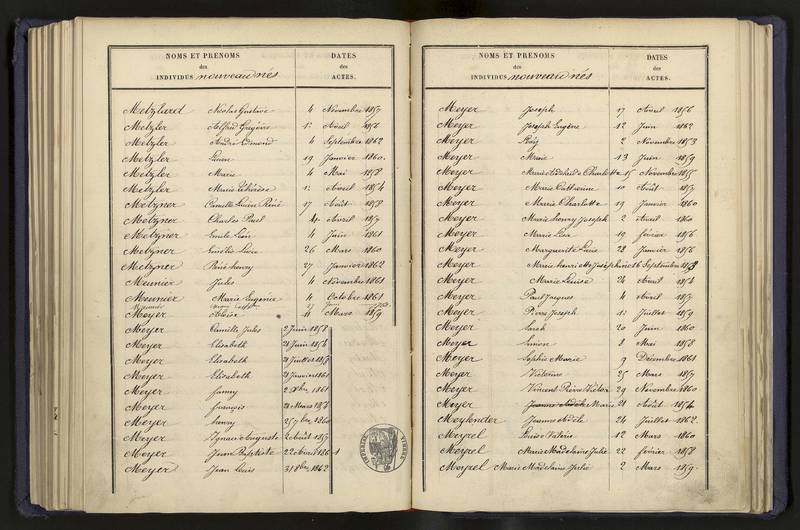 NOMS ET PRÉNOMS
des
INDIVIDUS nouveau nés
DATES
des
ACTES.
Metzlard Nicolas Gustave 4 Novembre 1857
Metzler Alfred Grégoire 1er Avril 1856
Metzler André Edmond 4 Septembre 1862
Metzler Lucien 19 Janvier 1860
Metzler Marie 4 Mai 1858
Metzler Marie Thérèse 1er Avril 1854
Metzner Camille Lucien René 17 Août 1858
Metzner Charles Paul 4 Avril 1857
Metzner Emile Léon 4 Juin 1861
Metzner Lucie 26 Mars 1860
Metzner René henry 27 Janvier 1862
Meunier Jules 4 Novembre 1861
Meunier Marie Eugénie 4 Octobre 1861
Meunier
Meyer 4 Mars 1859
Meyer Camille Jules 2 Juin 1858
Meyer Elisabeth 28 Juin 1856
Meyer Elisabeth 21 Juillet 1858
Meyer Elisabeth 21 Janvier 1861
Meyer fanny 1861
Meyer françois 28 Mars 1856
Meyer henry 25 7bre 1860
Meyer Ignace Auguste 2 Août 1857
Meyer Jean Baptiste 22 Avril 1861
Meyer Jean Louis 31 8bre 1862
NOMS ET PRÉNOMS
des
INDIVIDUS nouveau nés
DATES
des
ACTES.
Meyer Joseph 17 Avril 1856
Meyer Joseph Eugène 12 Juin 1862
Meyer 2 Novembre 1853
Meyer Marie 13 Juin 1859
Meyer Marie Adélaïde Charlotte 15 Novembre 1855
Meyer Marie Catherine 10 Août 1857
Meyer Marie Charlotte 19 Janvier 1860
Meyer Marie henry Joseph 2 Avril 1860
Meyer Marie Lisa 19 février 1856
Meyer Marguerite Lucie 28 Janvier 1856
Meyer Marie henriette Joséphine 16 Septembre 1853
Meyer Marie Louise 24 Avril 1854
Meyer Paul Jacques 4 Avril 1857
Meyer Pierre Joseph 1er Juillet 1859
Meyer Sarah 20 Juin 1860
Meyer Simon 8 Mai 1858
Meyer Sophie Marie 9 Décembre 1861
Meyer Victorine 25 Mars 1857
Meyer Vincent Pierre Victor 29 Novembre 1860
Meyer Marie 21 Août 1854
Meylender Jeanne Adèle 24 Juillet 1862
Meyrel Louise Valérie 12 Mars 1860
Meyrel Marie Madelaine Julie 22 février 1858
Meyrel Marie Madelaine Julie 2 Mars 1859